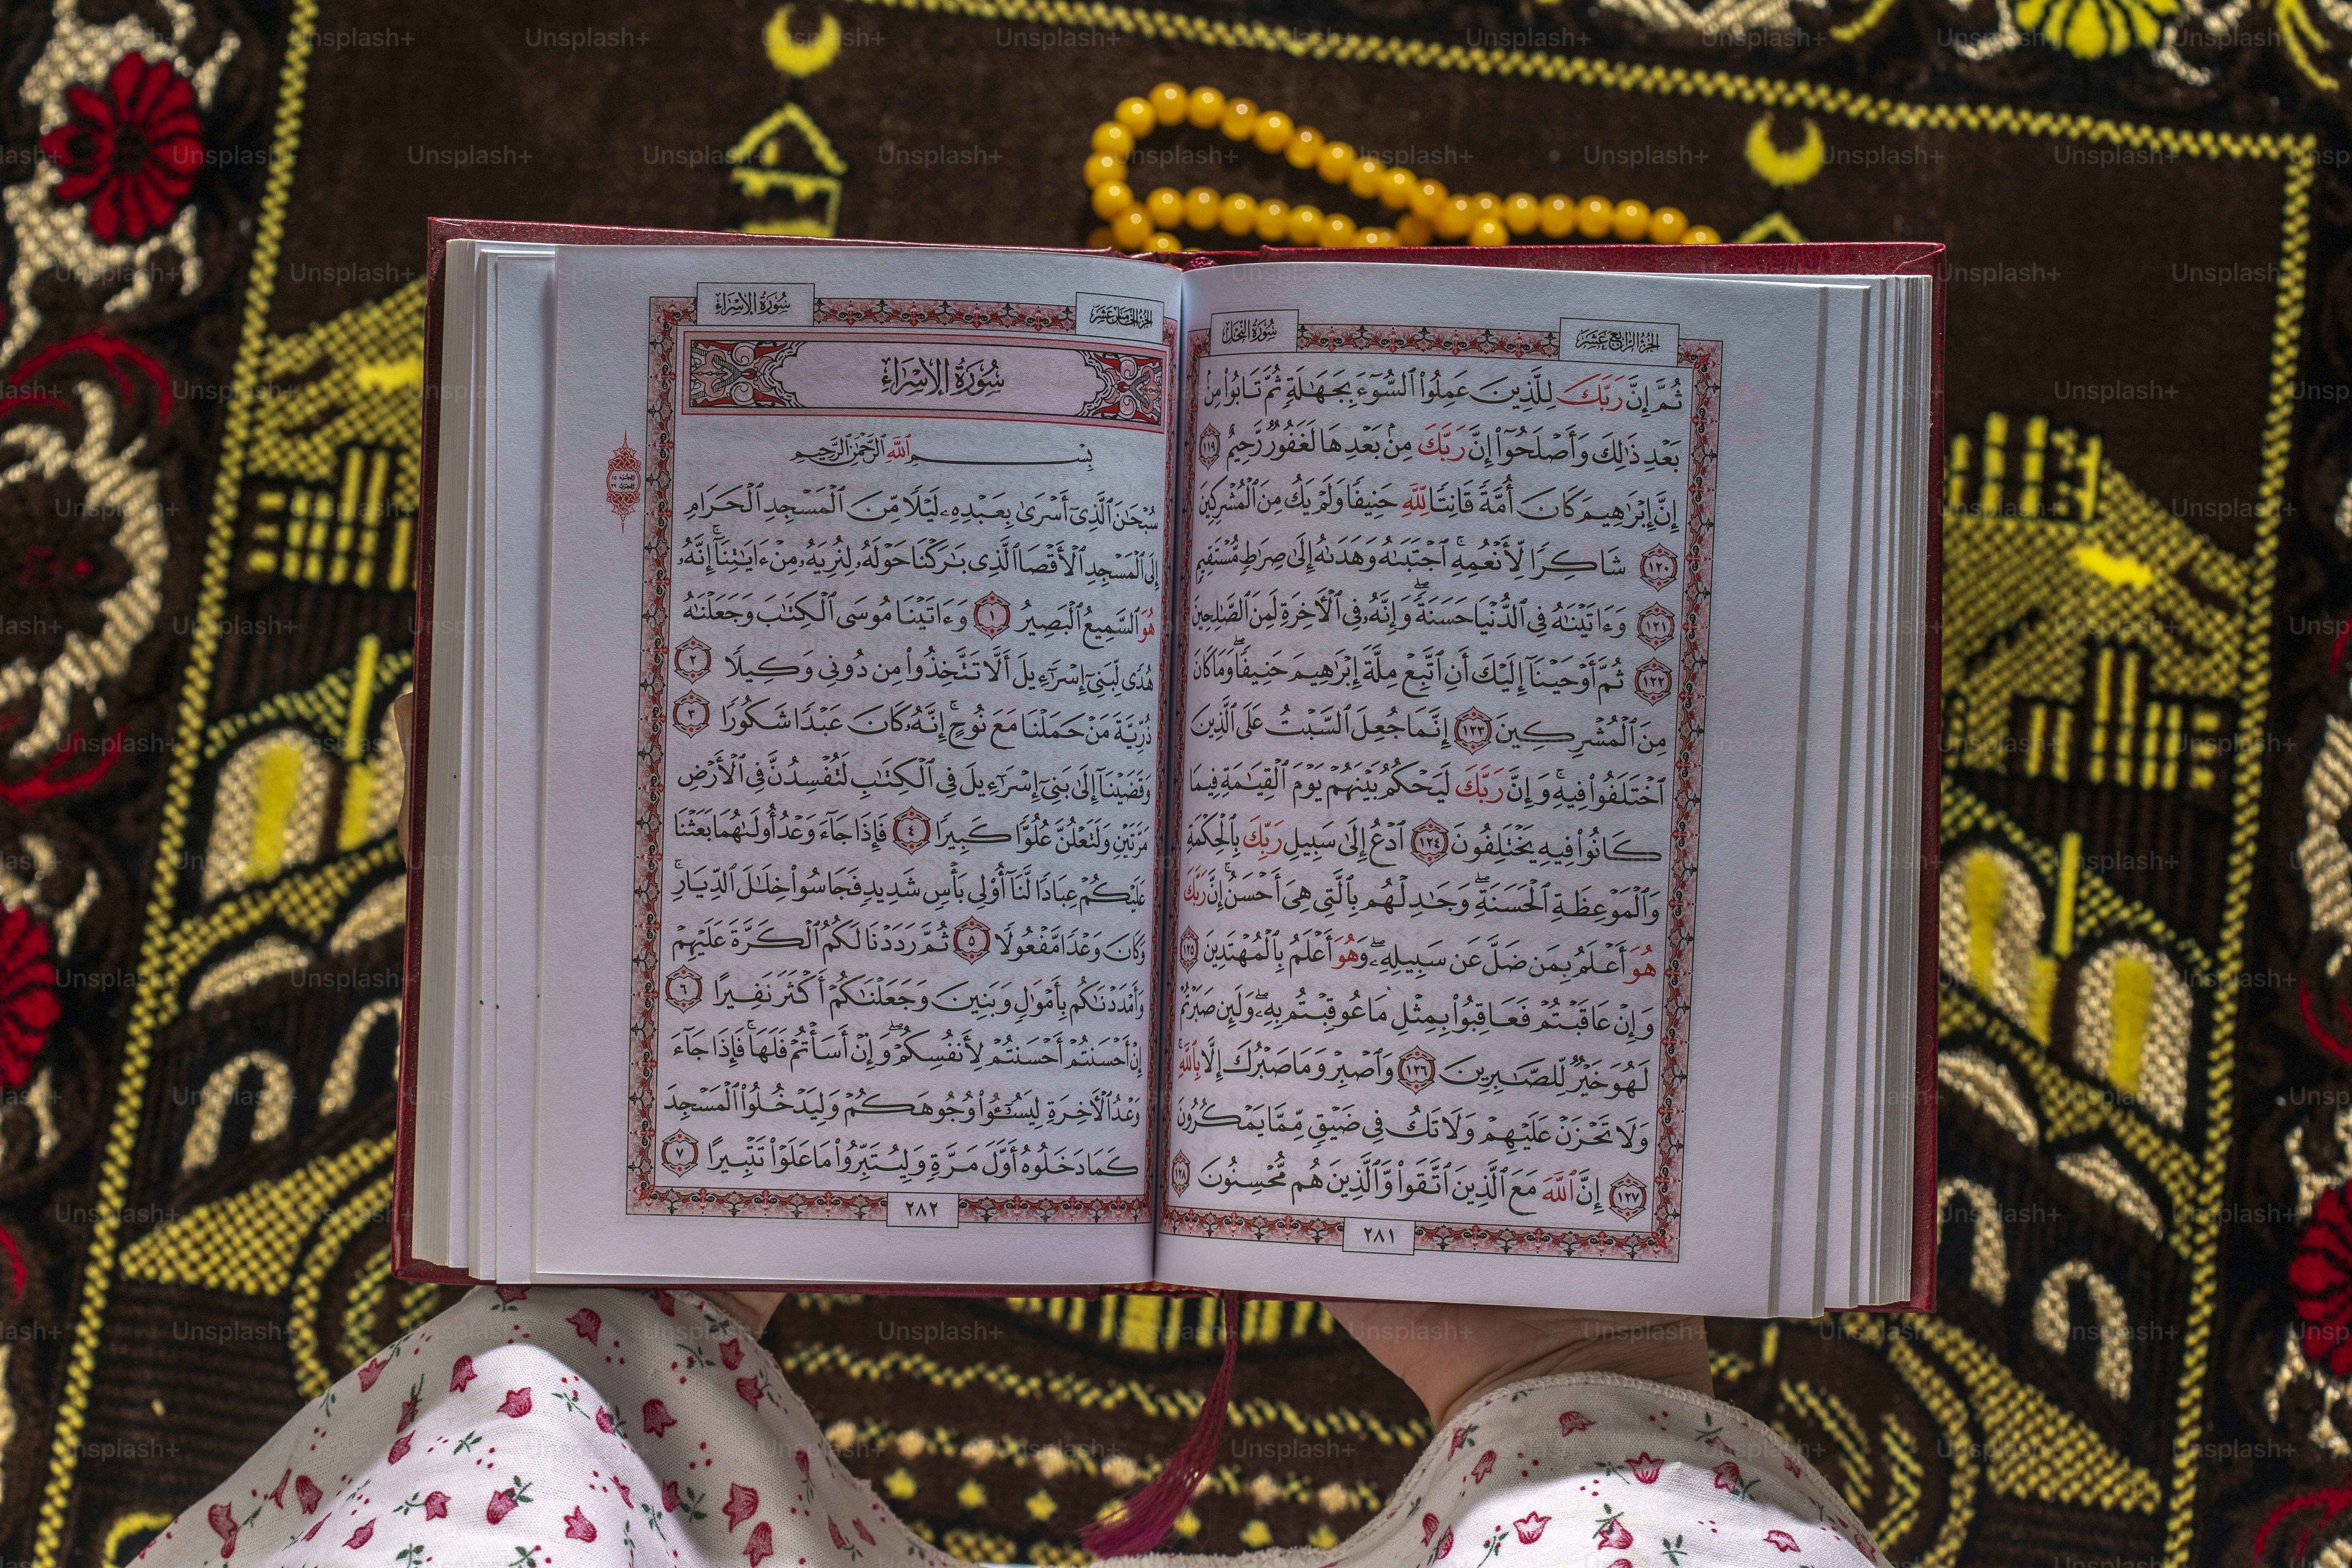 الجزء الرابع عشر
سورة النحل
ثُمَّ إِنَّ رَبَّكَ لِلَّذِينَ عَمِلُوا۟ ٱلسُّوٓءَ بِجَهَـٰلَةٍ ثُمَّ تَابُوا۟ مِنۢ
بَعْدِ ذَٰلِكَ وَأَصْلَحُوٓا۟ إِنَّ رَبَّكَ مِنۢ بَعْدِهَا لَغَفُورٌ رَّحِيمٌ ١١٩
إِنَّ إِبْرَٰهِيمَ كَانَ أُمَّةً قَانِتًا لِّلَّهِ حَنِيفًا وَلَمْ يَكُ مِنَ ٱلْمُشْرِكِينَ
١٢٠ شَاكِرًا لِّأَنْعُمِهِ ۚ ٱجْتَبَىٰهُ وَهَدَىٰهُ إِلَىٰ صِرَٰطٍ مُّسْتَقِيمٍ
١٢١ وَءَاتَيْنَـٰهُ فِى ٱلدُّنْيَا حَسَنَةً ۖ وَإِنَّهُۥ فِى ٱلْـَٔاخِرَةِ لَمِنَ ٱلصَّـٰلِحِينَ
١٢٢ ثُمَّ أَوْحَيْنَآ إِلَيْكَ أَنِ ٱتَّبِعْ مِلَّةَ إِبْرَٰهِيمَ حَنِيفًا ۖ وَمَا كَانَ
مِنَ ٱلْمُشْرِكِينَ ١٢٣ إِنَّمَا جُعِلَ ٱلسَّبْتُ عَلَى ٱلَّذِينَ
ٱخْتَلَفُوا۟ فِيهِ ۚ وَإِنَّ رَبَّكَ لَيَحْكُمُ بَيْنَهُمْ يَوْمَ ٱلْقِيَـٰمَةِ فِيمَا
كَانُوا۟ فِيهِ يَخْتَلِفُونَ ١٢٤ ٱدْعُ إِلَىٰ سَبِيلِ رَبِّكَ بِٱلْحِكْمَةِ
وَٱلْمَوْعِظَةِ ٱلْحَسَنَةِ ۖ وَجَـٰدِلْهُم بِٱلَّتِى هِىَ أَحْسَنُ ۚ إِنَّ رَبَّكَ
هُوَ أَعْلَمُ بِمَن ضَلَّ عَن سَبِيلِهِۦ ۖ وَهُوَ أَعْلَمُ بِٱلْمُهْتَدِينَ ١٢٥
وَإِنْ عَاقَبْتُمْ فَعَاقِبُوا۟ بِمِثْلِ مَا عُوقِبْتُم بِهِۦ ۖ وَلَئِن صَبَرْتُمْ
لَهُوَ خَيْرٌ لِّلصَّـٰبِرِينَ ١٢٦ وَٱصْبِرْ وَمَا صَبْرُكَ إِلَّا بِٱللَّهِ ۚ
وَلَا تَحْزَنْ عَلَيْهِمْ وَلَا تَكُ فِى ضَيْقٍ مِّمَّا يَمْكُرُونَ
١٢٧ إِنَّ ٱللَّهَ مَعَ ٱلَّذِينَ ٱتَّقَوا۟ وَّٱلَّذِينَ هُم مُّحْسِنُونَ ١٢٨
٢٨١
الجزء الخامس عشر
سورة الإسراء
سُورَةُ الإِسْرَاءِ
بِسْمِ ٱللَّهِ ٱلرَّحْمَـٰنِ ٱلرَّحِيمِ
سُبْحَـٰنَ ٱلَّذِىٓ أَسْرَىٰ بِعَبْدِهِۦ لَيْلًا مِّنَ ٱلْمَسْجِدِ ٱلْحَرَامِ
إِلَى ٱلْمَسْجِدِ ٱلْأَقْصَا ٱلَّذِى بَـٰرَكْنَا حَوْلَهُۥ لِنُرِيَهُۥ مِنْ ءَايَـٰتِنَآ ۚ إِنَّهُۥ
هُوَ ٱلسَّمِيعُ ٱلْبَصِيرُ ١ وَءَاتَيْنَا مُوسَى ٱلْكِتَـٰبَ وَجَعَلْنَـٰهُ
هُدًى لِّبَنِىٓ إِسْرَٰٓءِيلَ أَلَّا تَتَّخِذُوا۟ مِن دُونِى وَكِيلًا ٢
ذُرِّيَّةَ مَنْ حَمَلْنَا مَعَ نُوحٍ ۚ إِنَّهُۥ كَانَ عَبْدًا شَكُورًا ٣
وَقَضَيْنَآ إِلَىٰ بَنِىٓ إِسْرَٰٓءِيلَ فِى ٱلْكِتَـٰبِ لَتُفْسِدُنَّ فِى ٱلْأَرْضِ
مَرَّتَيْنِ وَلَتَعْلُنَّ عُلُوًّا كَبِيرًا ٤ فَإِذَا جَآءَ وَعْدُ أُولَىٰهُمَا بَعَثْنَا
عَلَيْكُمْ عِبَادًا لَّنَآ أُو۟لِى بَأْسٍ شَدِيدٍ فَجَاسُوا۟ خِلَـٰلَ ٱلدِّيَارِ ۚ
وَكَانَ وَعْدًا مَّفْعُولًا ٥ ثُمَّ رَدَدْنَا لَكُمُ ٱلْكَرَّةَ عَلَيْهِمْ
وَأَمْدَدْنَـٰكُم بِأَمْوَٰلٍ وَبَنِينَ وَجَعَلْنَـٰكُمْ أَكْثَرَ نَفِيرًا ٦
إِنْ أَحْسَنتُمْ أَحْسَنتُمْ لِأَنفُسِكُمْ ۖ وَإِنْ أَسَأْتُمْ فَلَهَا ۚ فَإِذَا جَآءَ
وَعْدُ ٱلْـَٔاخِرَةِ لِيَسُـۥٓـُٔوا۟ وُجُوهَكُمْ وَلِيَدْخُلُوا۟ ٱلْمَسْجِدَ
كَمَا دَخَلُوهُ أَوَّلَ مَرَّةٍ وَلِيُتَبِّرُوا۟ مَا عَلَوْا۟ تَتْبِيرًا ٧
٢٨٢
Unsplash+